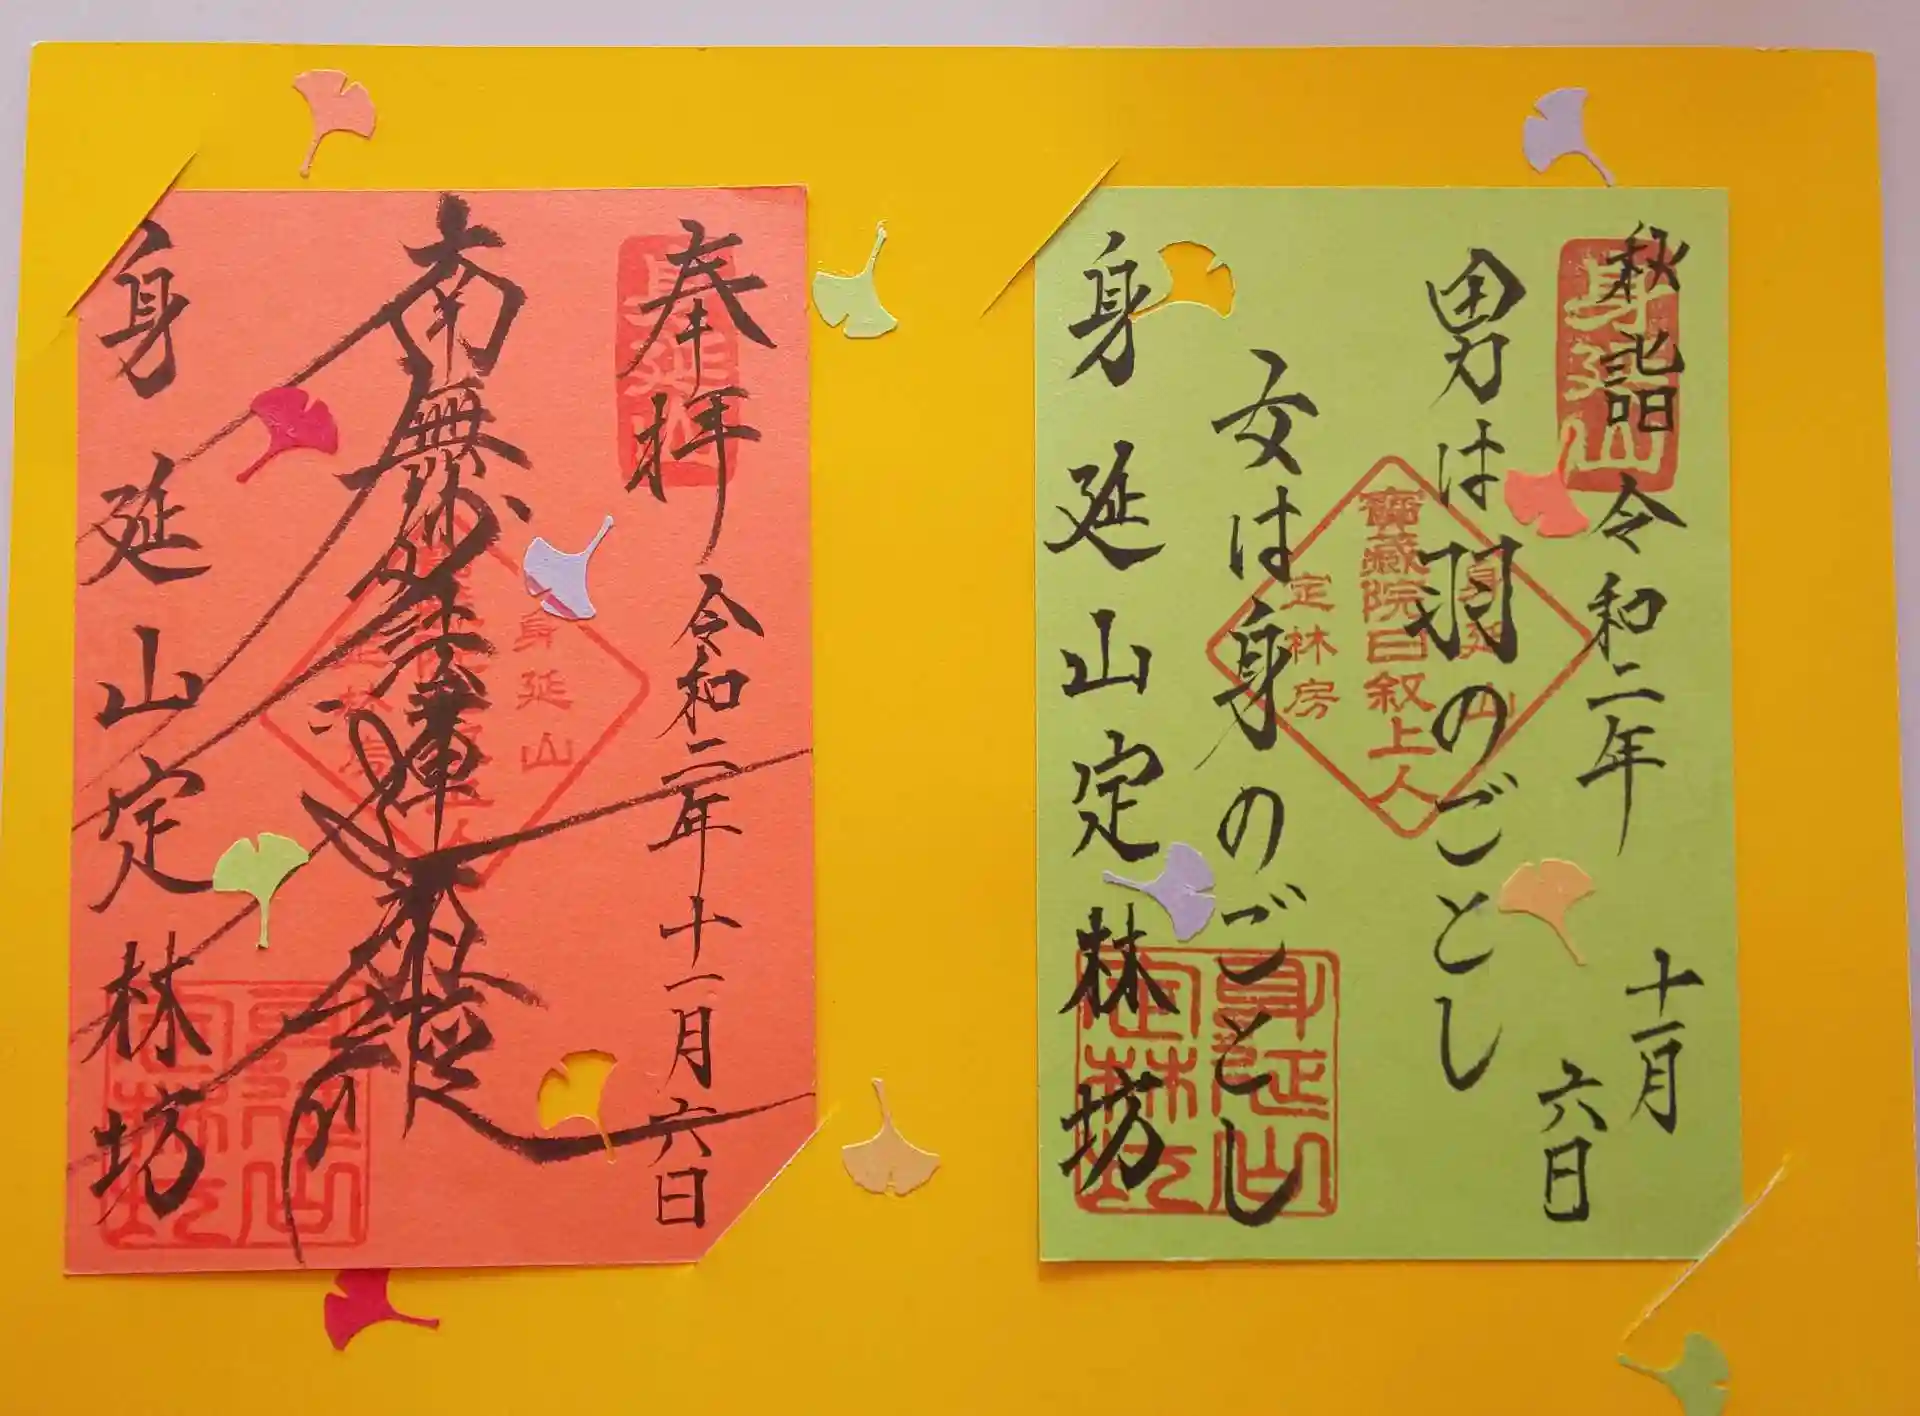 奉拝
令和二年十一月六日
南無妙法蓮華経
身延山定林坊
身延山
身延山
定林房
身延山定林坊
秋詣
令和二年
十一月
六日
男は羽のごとし
女は身のごとし
身延山定林坊
身延山
身延山
寶藏院日叙上人
定林房
身延山定林坊